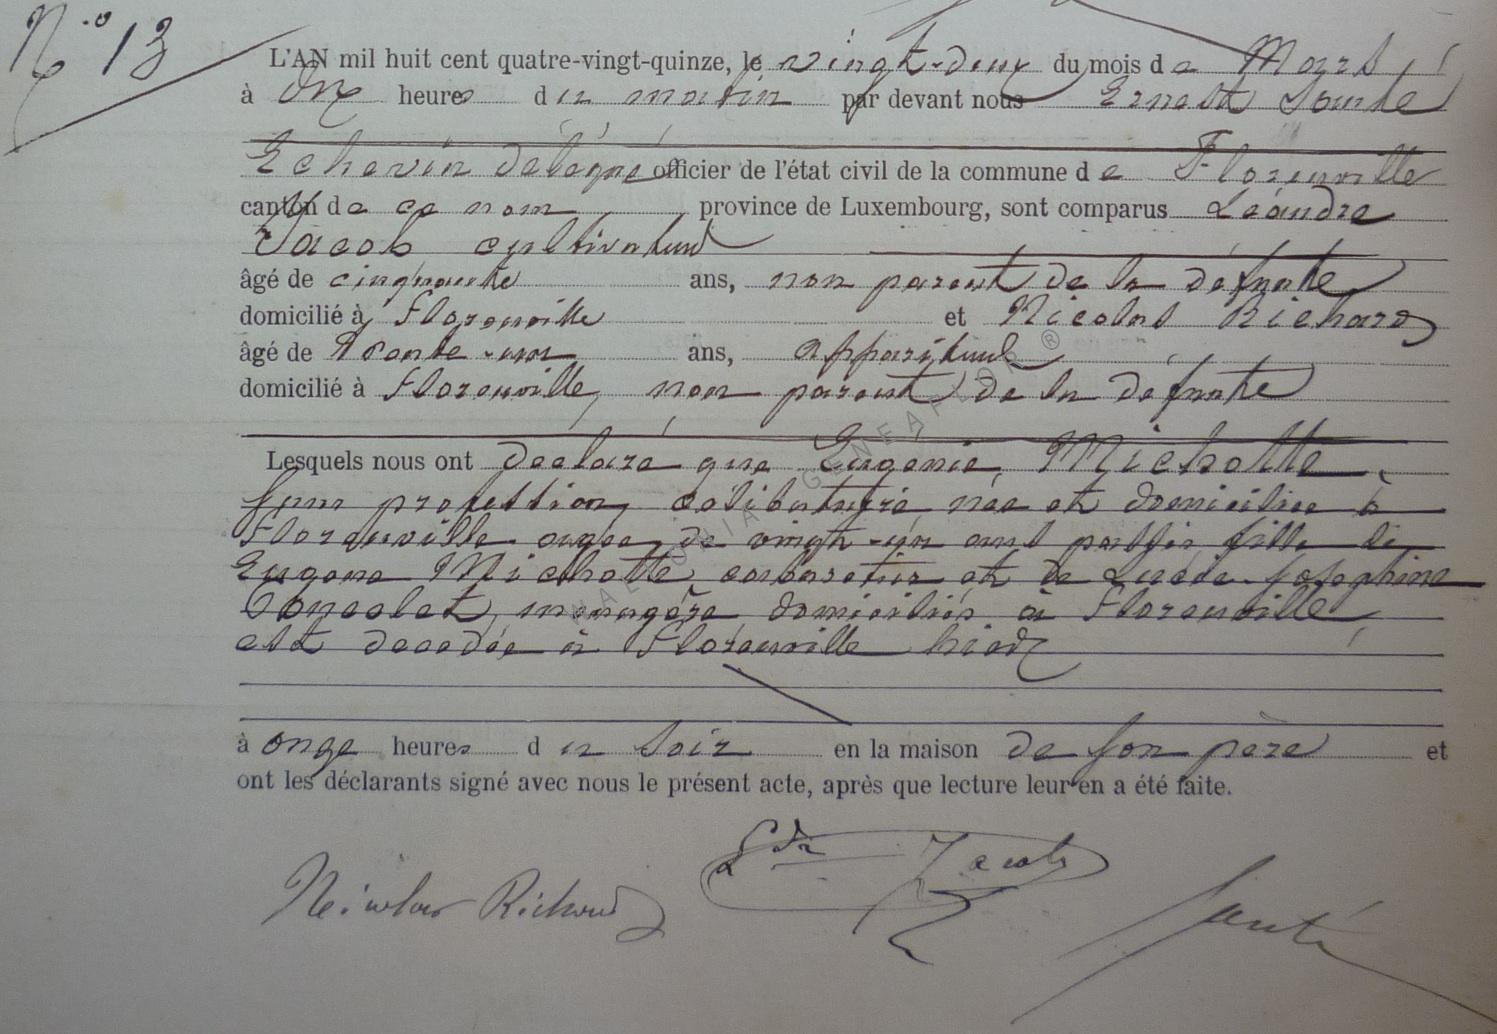 N.º 13
L'AN mil huit cent quatre-vingt-quinze, le vingt-deux du mois de Mars,
à dix heures du matin par devant nous Ernest
Echevin délégué officier de l'état civil de la commune de Florenville
canton de ce nom, province de Luxembourg, sont comparus Léandre
Jacob cultivateur
âgé de cinquante ans, non parent de la défunte
domicilié à Florenville et Nicolas Richard
âgé de trente-un ans, appariteur
domicilié à Florenville, non parent de la défunte
Lesquels nous ont déclaré que Eugénie Michotte
sans profession, célibataire née et domiciliée à
Florenville agée de vingt-un ans passés fille de
Eugène Michotte, cabaretier et de Joséphine
ménagère domiciliés à Florenville,
est décédée à Florenville hier
à onze heures du soir en la maison de son père et
ont les déclarants signé avec nous le présent acte, après que lecture leur en a été faite.
Nicolas Richard Jacob
WALLONIA GENEAFLOR ®